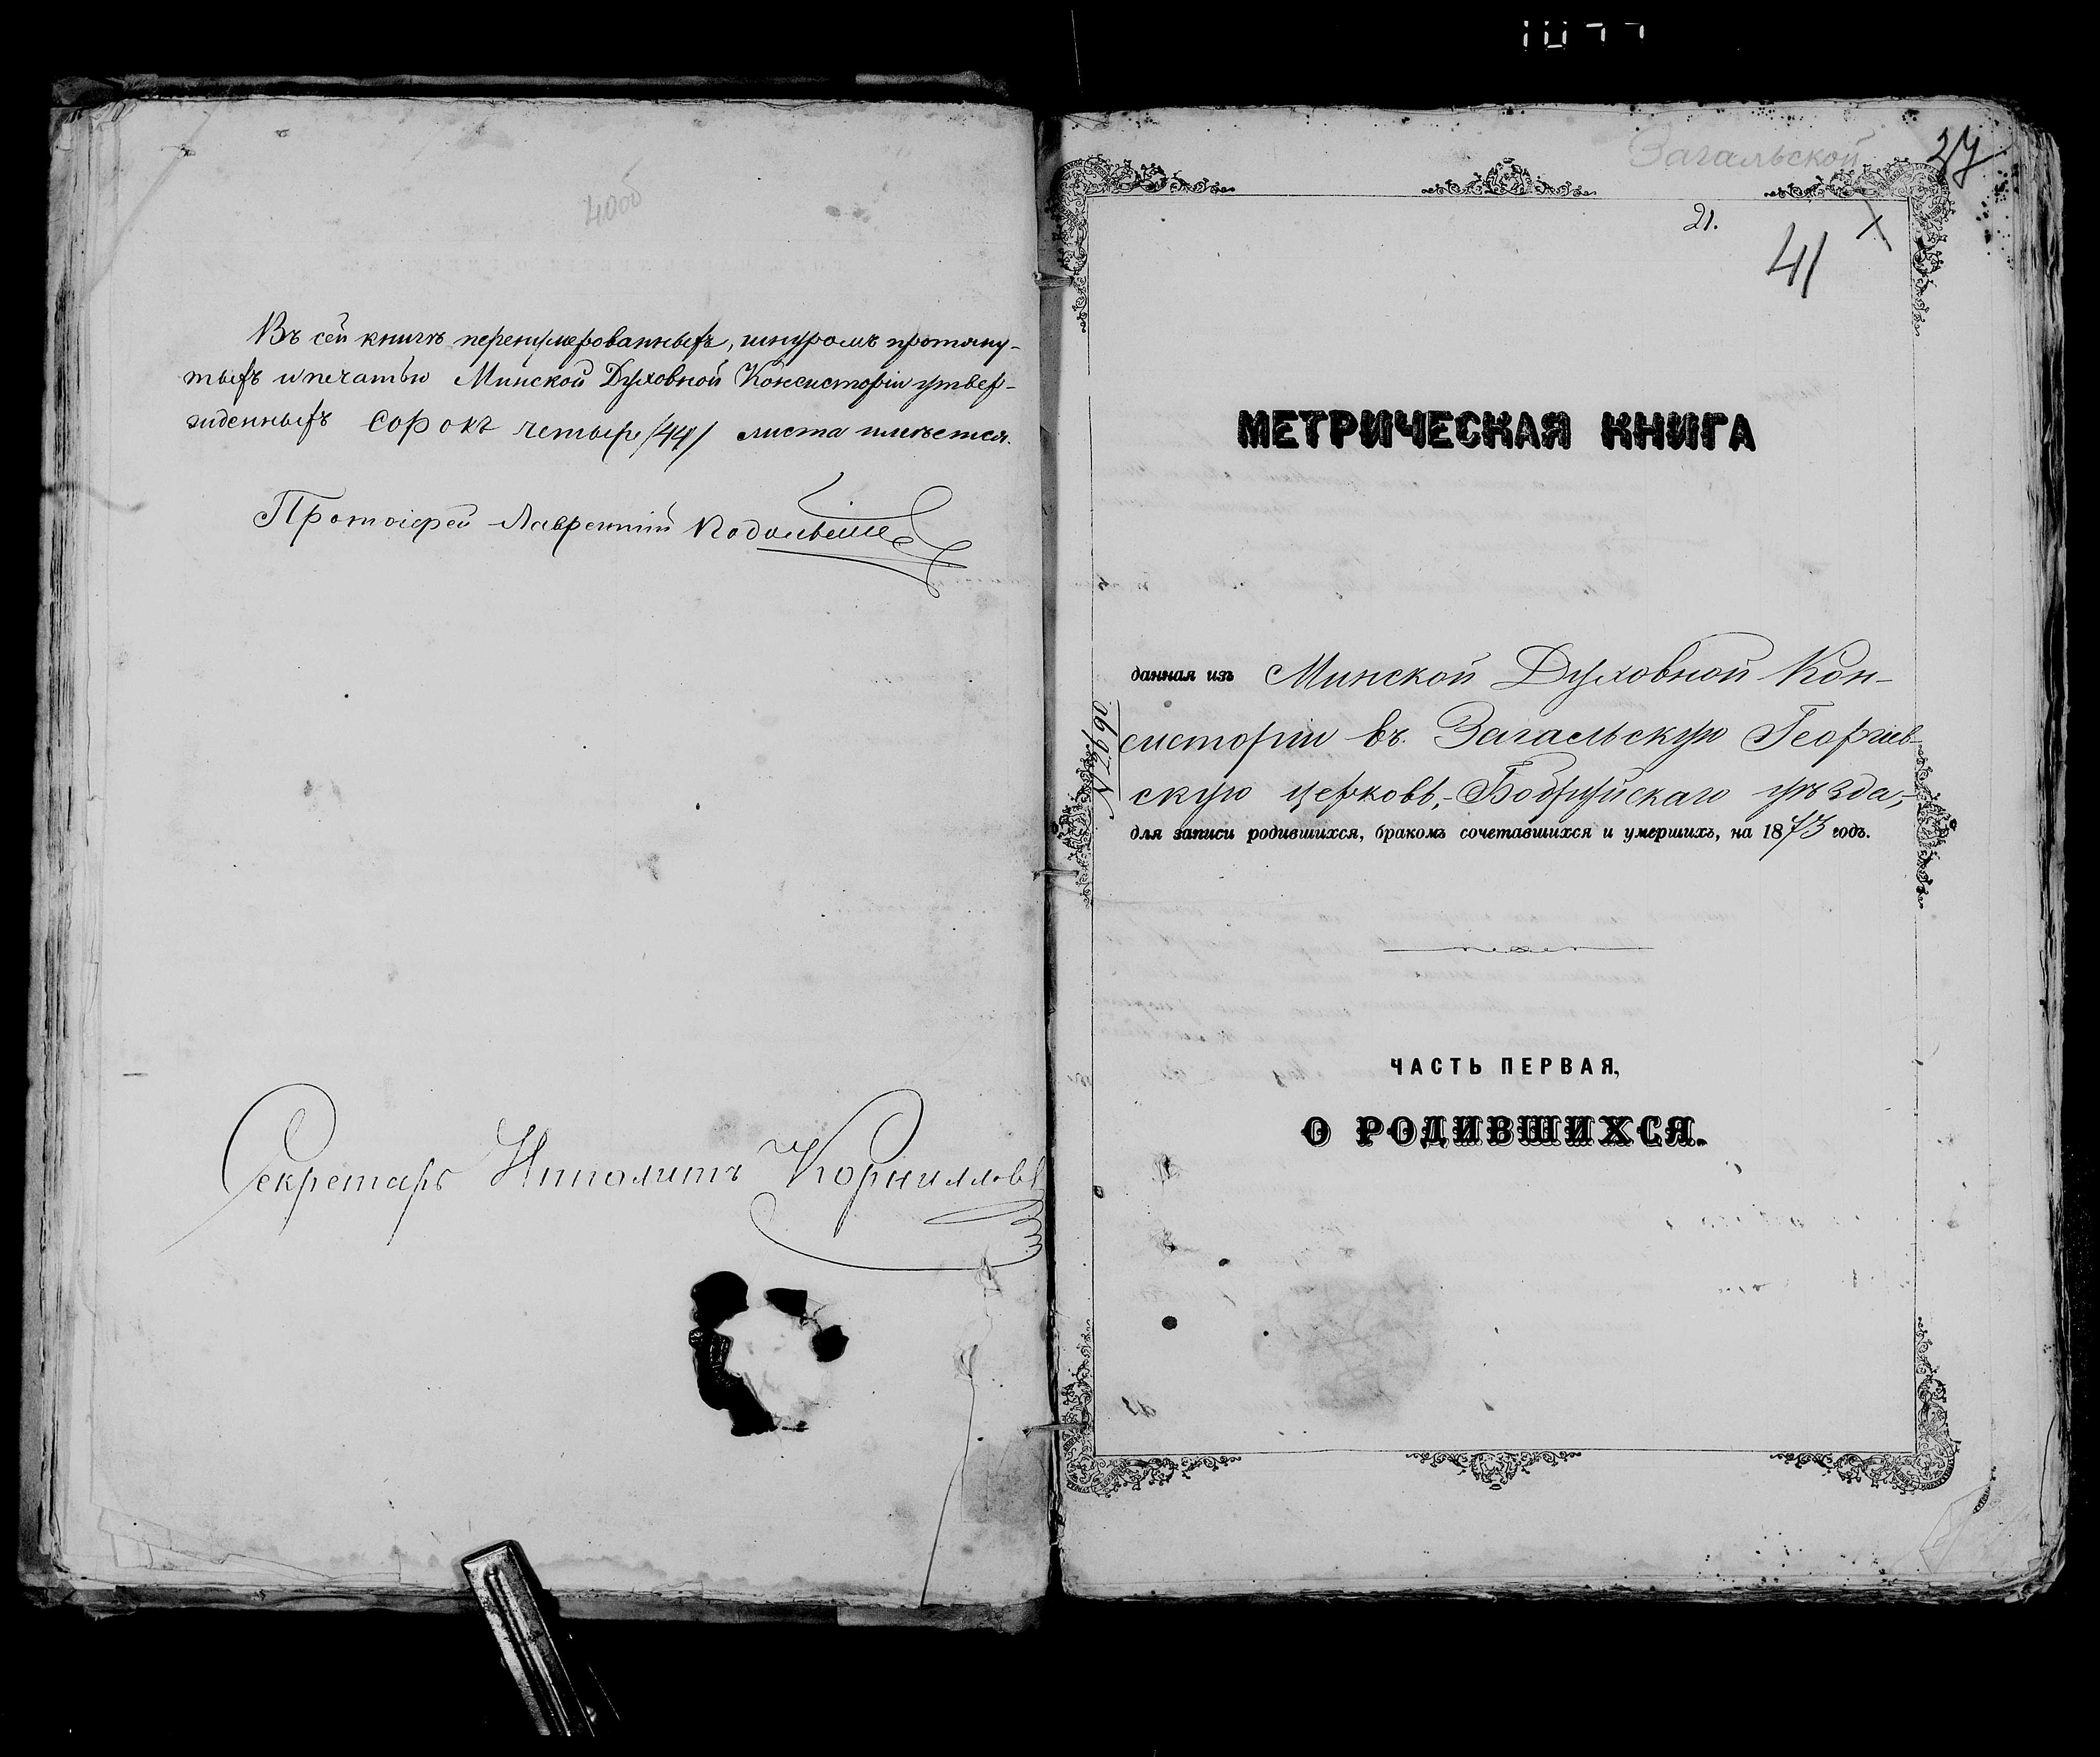 40об
Въ сей книгѣ перенумерованныхъ, шнуромъ протяну-
тыхъ и печатью Минской Духовной Консисторіи утвер-
жденныхъ сорокъ четыре /44/ листа имѣется.
Протоіерей Лаврентій
Секретарь Ипполитъ Корниловъ
Загальской
27
21.
41
МЕТРИЧЕСКАЯ КНИГА
данная изъ Минской Духовной Кон-
систоріи въ Загальскую Георгіев-
скую церковь, Бобруйскаго уѣзда,
для записи родившихся, бракомъ сочетавшихся и умершихъ, на 1873 годъ.
№ 2690.
ЧАСТЬ ПЕРВАЯ,
О РОДИВШИХСЯ.